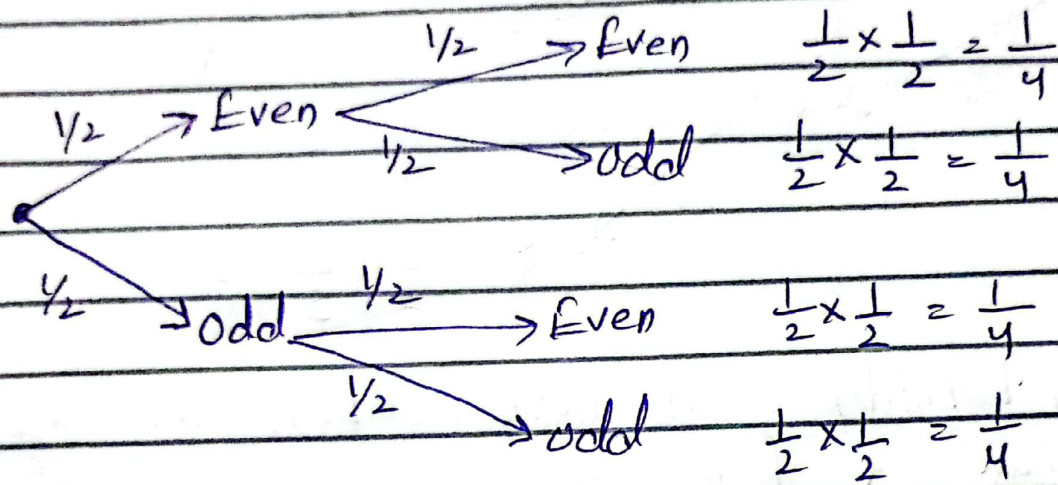 1/2 Even 1/2 × 1/2 = 1/4
1/2 Even
1/2 odd 1/2 × 1/2 = 1/4
1/2 odd 1/2 Even 1/2 × 1/2 = 1/4
1/2 odd 1/2 × 1/2 = 1/4